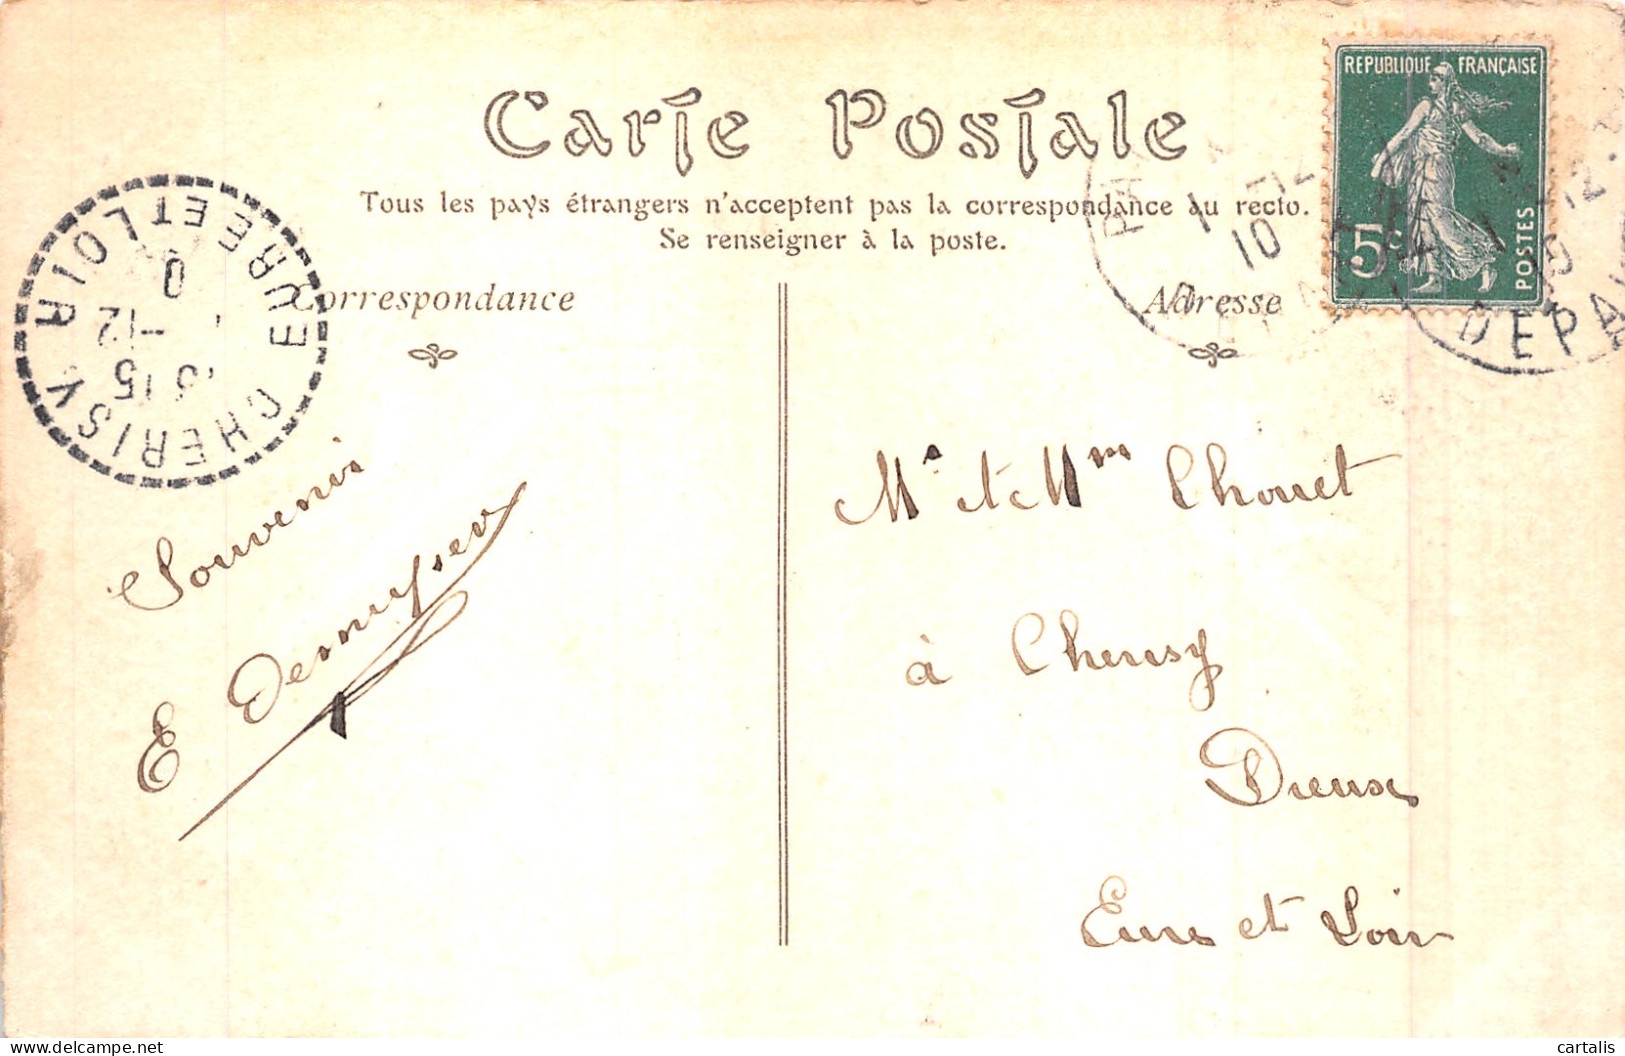 Carte Postale
Tous les pays étrangers n'acceptent pas la correspondance au recto.
Se renseigner à la poste.
Correspondance
Adresse
REPUBLIQUE FRANÇAISE
5c
POSTES
CHERISY EURE ET LOIR
15
-12
10
DEPA
Souvenir
E
Mr et Mme Chouet
à Cherisy
Dreux
Eure et Loir
cartalis